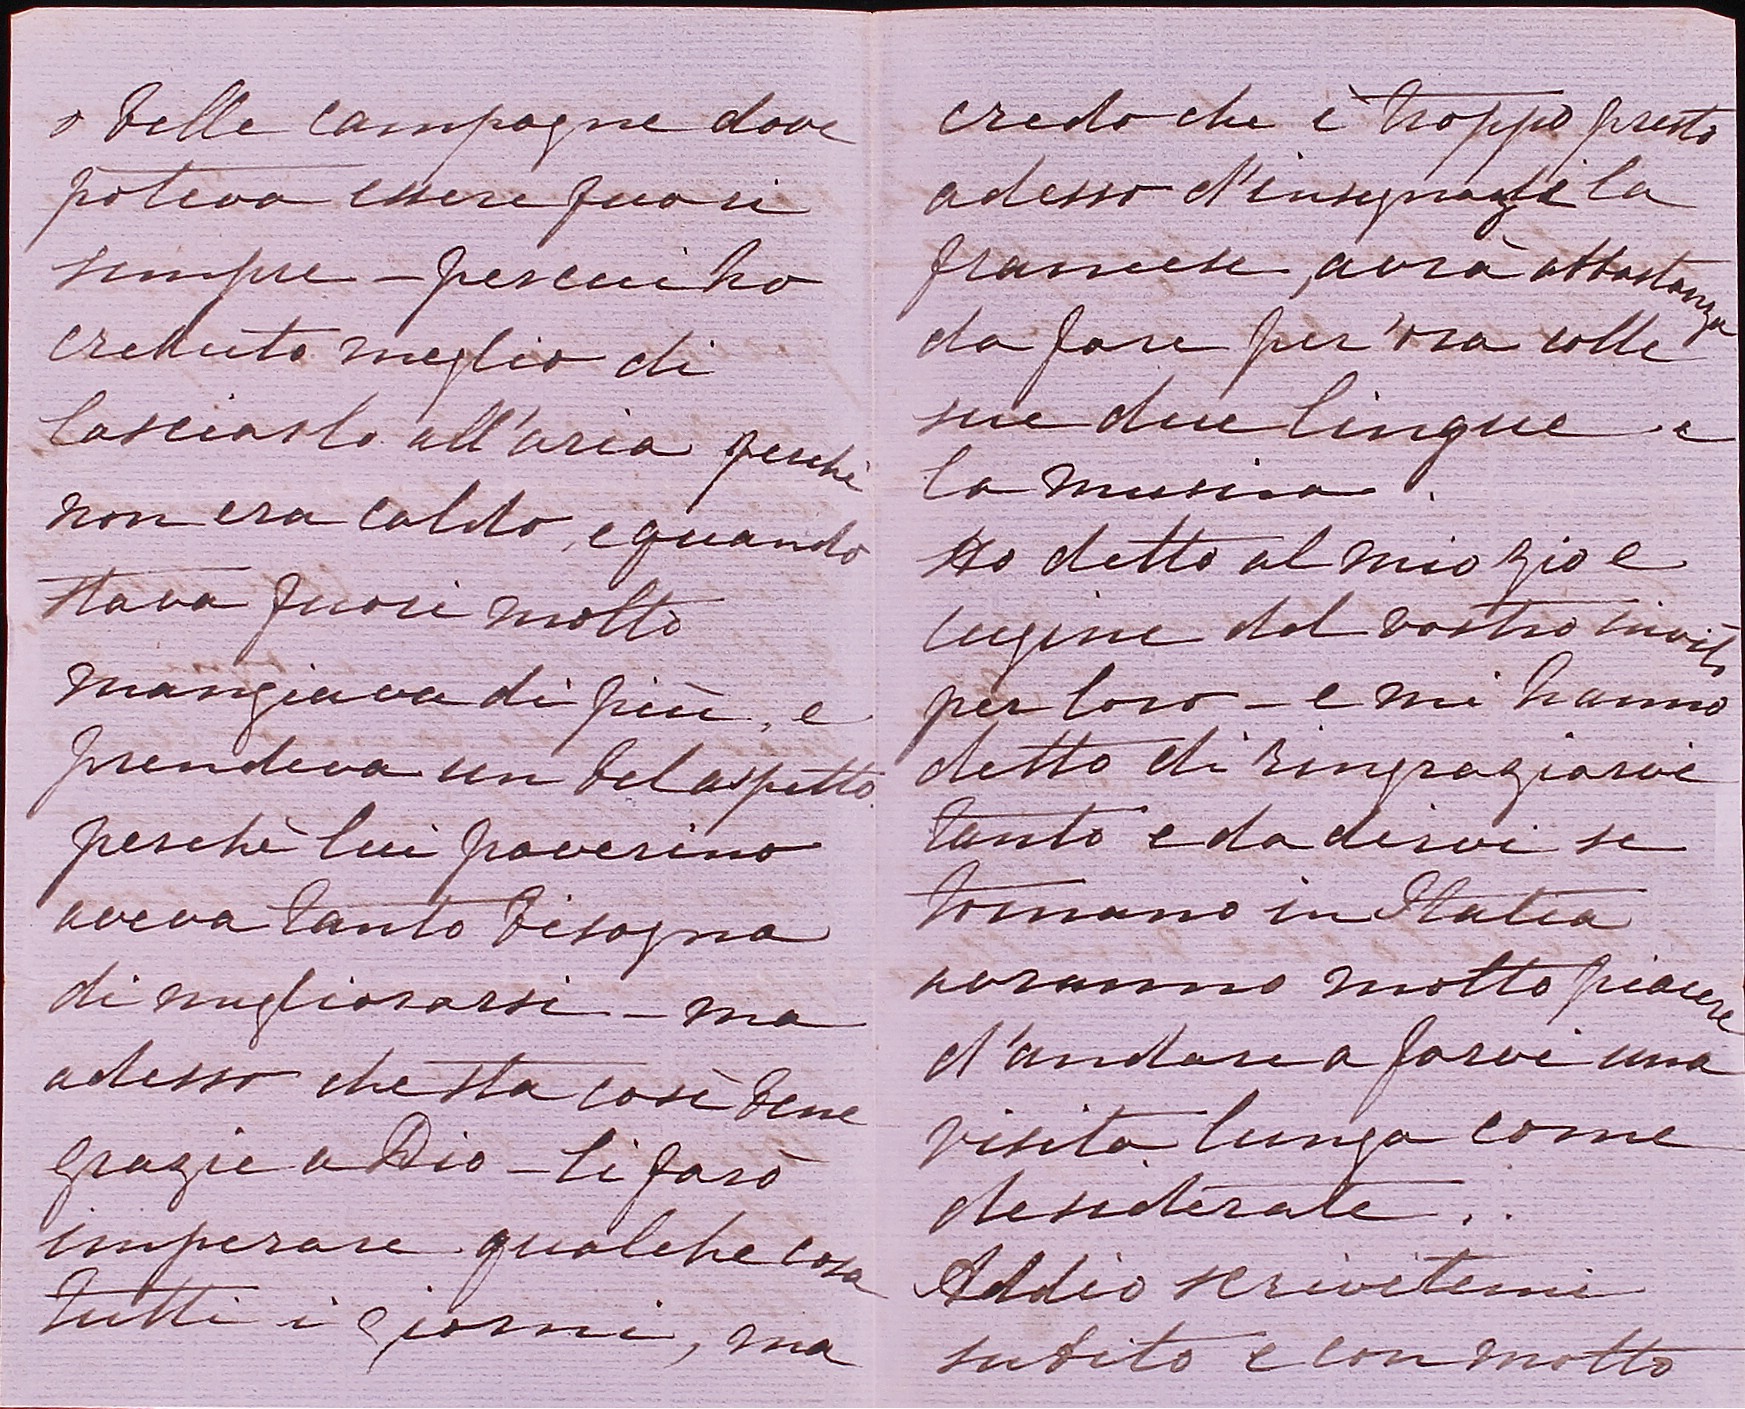 o belle campagne dove
poteva essere fuori
sempre – per cui ho
creduto meglio di
lasciarlo all'aria perchè
non era caldo, e quando
stava fuori molto
mangiava di più, e
prendeva un bel aspetto
perchè lui poverino
aveva tanto bisogna
di migliorarsi – ma
adesso che sta così bene
grazie a Dio – li farò
imperare qualche cosa
tutti i giorni, ma
credo che è troppo presto
adesso d'insegnargli la
francese, avrà abbastanza
da fare per'ora colle
sue due lingue e
la musica.
Ho detto al mio zio e
cugine del vostro invito
per loro – e mi hanno
detto di ringraziarvi
tanto e da dirvi se
tornano in Italia
avranno molto piacere
d'andare a farvi una
visita lunga come
desiderate..
Addio scrivetemi
subito e con molto